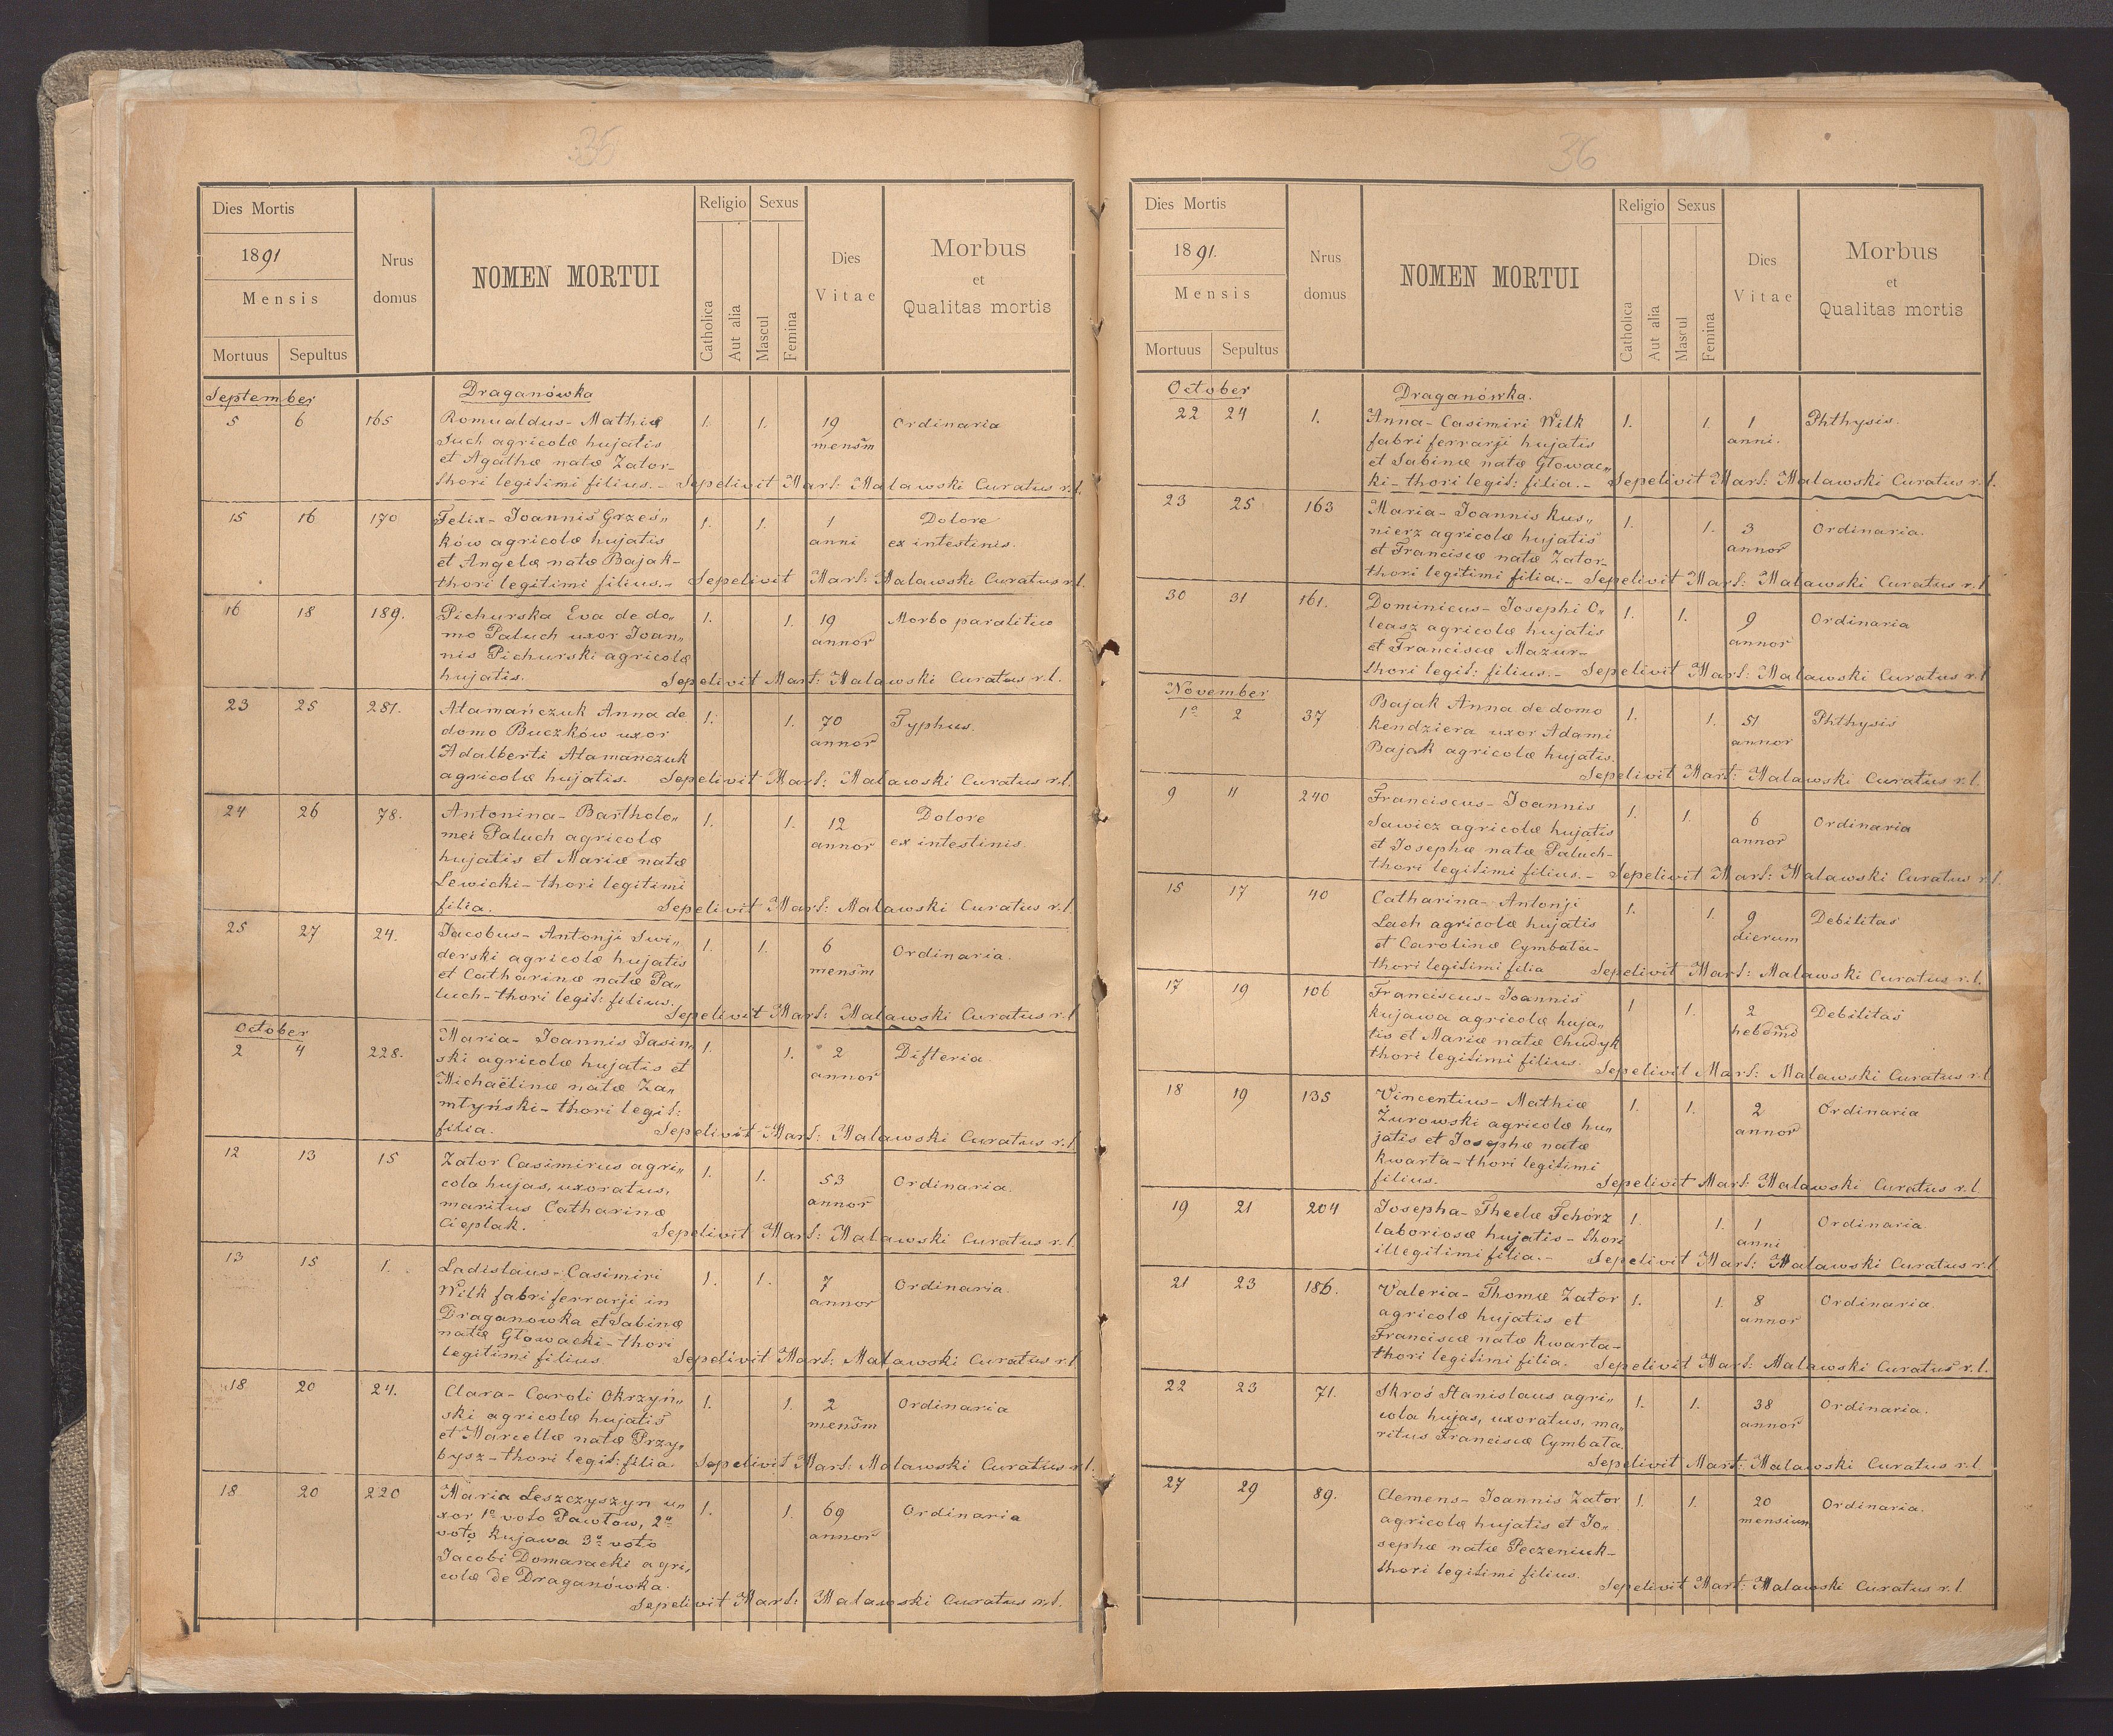 35
Dies Mortis
1891
Mensis
Mortuus Sepultus
Nrus domus
NOMEN MORTUI
Religio
Catholica
Aut alia
Sexus
Mascul
Femina
Dies Vitae
Morbus
et
Qualitas mortis
September Draganówka
5 6 165 Romualdus - Mathiæ 1. 1. 19 Ordinaria
Such agricolæ hujatis mensm̃
et Agathæ natæ Zator-
thori legitimi filius. - Sepelivit Mart: Malawski Curatus r. l.
15 16 170 Felix - Joannis Grześ„ 1. 1. 1 Dolore
ków agricolæ hujatis anni ex intestinis.
et Angelæ natæ Bajak-
thori legitimi filius. - Sepelivit Mart: Malawski Curatus r. l.
16 18 189. Pichurska Eva de do„ 1. 1. 19 Morbo paralitico
mo Paluch uxor Joan„ annor̃
nis Pichurski agricolæ
hujatis. Sepelivit Mart: Malawski Curatus r. l.
23 25 281. Atamańczuk Anna de 1. 1. 70 Typhus.
domo Buczków uxor annor̃
Adalberti Atamańczuk
agricolæ hujatis. Sepelivit Mart: Malawski Curatus r. l.
24 26 78. Antonina - Bartholo„ 1. 1. 12 Dolore
mei Paluch agricolæ annor̃ ex intestinis.
hujatis et Mariæ natæ
Lewicki - thori legitimi
filia. Sepelivit Mart: Malawski Curatus r. l.
25 27 24. Jacobus - Antonji Swi„ 1. 1. 6 Ordinaria.
derski agricolæ hujatis mensm̃
et Catharinæ natæ Pa„
luch - thori legit: filius. Sepelivit Mart: Malawski Curatus r. l.
October
2 4 228. Maria - Joannis Jasin„ 1. 1. 2 Difteria
ski agricolæ hujatis et annor̃
Michaëlinæ natæ Za„
mtyński - thori legit:
filia. Sepelivit Mart: Malawski Curatus r. l.
12 13 15 Zator Casimirus agri„ 1. 1. 53 Ordinaria.
cola hujas, uxoratus, annor̃
maritus Catharinæ
Cieplak. Sepelivit Mart: Malawski Curatus r. l.
13 15 1. Ladislaus - Casimiri 1. 1. 7 Ordinaria.
Wilk fabri ferrarji in annor̃
Draganowka et Sabinæ
natæ Głowacki - thori
legitimi filius. Sepelivit Mart: Malawski Curatus r. l.
18 20 24. Clara - Caroli Okrzyń„ 1. 1. 2 Ordinaria
ski agricolæ hujatis mensm̃
et Marcellæ natæ Przy„
bysz - thori legit: filia. Sepelivit Mart: Malawski Curatus r. l.
18 20 220 Maria Leszczyszyn u„ 1. 1. 69 Ordinaria
xor 1º voto Pawłow, 2º annor̃
voto Kujawa 3º voto
Jacobi Domaracki agri„
colæ de Draganówka.
Sepelivit Mart: Malawski Curatus r. l.
36
Dies Mortis
1891.
Mensis
Mortuus Sepultus
Nrus domus
NOMEN MORTUI
Religio
Catholica
Aut alia
Sexus
Mascul
Femina
Dies Vitae
Morbus
et
Qualitas mortis
October Draganówka.
22 24 1. Anna - Casimiri Wilk 1. 1. 1 Phthysis.
fabri ferrarji hujatis anni.
et Sabinæ natæ Głowac„
ki - thori legit: filia. - Sepelivit Mart: Malawski Curatus r. l.
23 25 163 Maria - Joannis Kus„ 1. 1. 3 Ordinaria.
nierz agricolæ hujatis annor̃
et Franciscæ natæ Zator-
thori legitimi filia. - Sepelivit Mart: Malawski Curatus r. l.
30 31 161. Dominicus - Josephi O„ 1. 1. 9 Ordinaria
leasz agricolæ hujatis annor̃
et Franciscæ Mazur-
thori legit: filius. - Sepelivit Mart: Malawski Curatus r. l.
November
1º 2 37 Bajak Anna de domo 1. 1. 51 Phthysis
Kendziera uxor Adami annor
Bajak agricolæ hujatis.
Sepelivit Mart: Malawski Curatus r. l.
9 11 240 Franciscus - Joannis 1. 1. 6 Ordinaria
Sawicz agricolæ hujatis annor̃
et Josephæ natæ Paluch-
thori legitimi filius. - Sepelivit Mart: Malawski Curatus r. l.
15 17 40 Catharina - Antonji 1. 1. 9 Debilitas
Lach agricolæ hujatis dierum
et Carolinæ Cymbata-
thori legitimi filia Sepelivit Mart: Malawski Curatus r. l.
17 19 106 Franciscus - Joannis 1 1. 2 Debilitas
Kujawa agricolæ huja„ hebdm̃d
tis et Mariæ natæ Chudyk
thori legitimi filius. Sepelivit Mart: Malawski Curatus r. l.
18 19 135 Vincentius - Mathiæ 1. 1. 2 Ordinaria
Żurowski agricolæ hu„ annor̃
jatis et Josephæ natæ
Kwarta - thori legitimi
filius. Sepelivit Mart: Malawski Curatus r. l.
19 21 204 Josepha - Theclæ Tchórz 1. 1. 1 Ordinaria.
laboriosæ hujatis - thori anni
illegitimi filia. - Sepelivit Mart: Malawski Curatus r. l.
21 23 186. Valeria - Thomæ Zator 1. 1. 8 Ordinaria.
agricolæ hujatis et annor̃
Franciscæ natæ Kwarta-
thori legitimi filia. Sepelivit Mart: Malawski Curatus r. l.
22 23 71. Skroś Stanislaus agri„ 1. 1. 38 Ordinaria.
cola hujas, uxoratus, ma„ annor̃
ritus Franciscæ Cymbata.
Sepelivit Mart: Malawski Curatus r. l.
27 29 89. Clemens - Joannis Zator 1. 1. 20 Ordinaria.
agricolæ hujatis et Jo„ mensium
sephæ natæ Peczeniuk-
thori legitimi filius.
Sepelivit Mart: Malawski Curatus r. l.